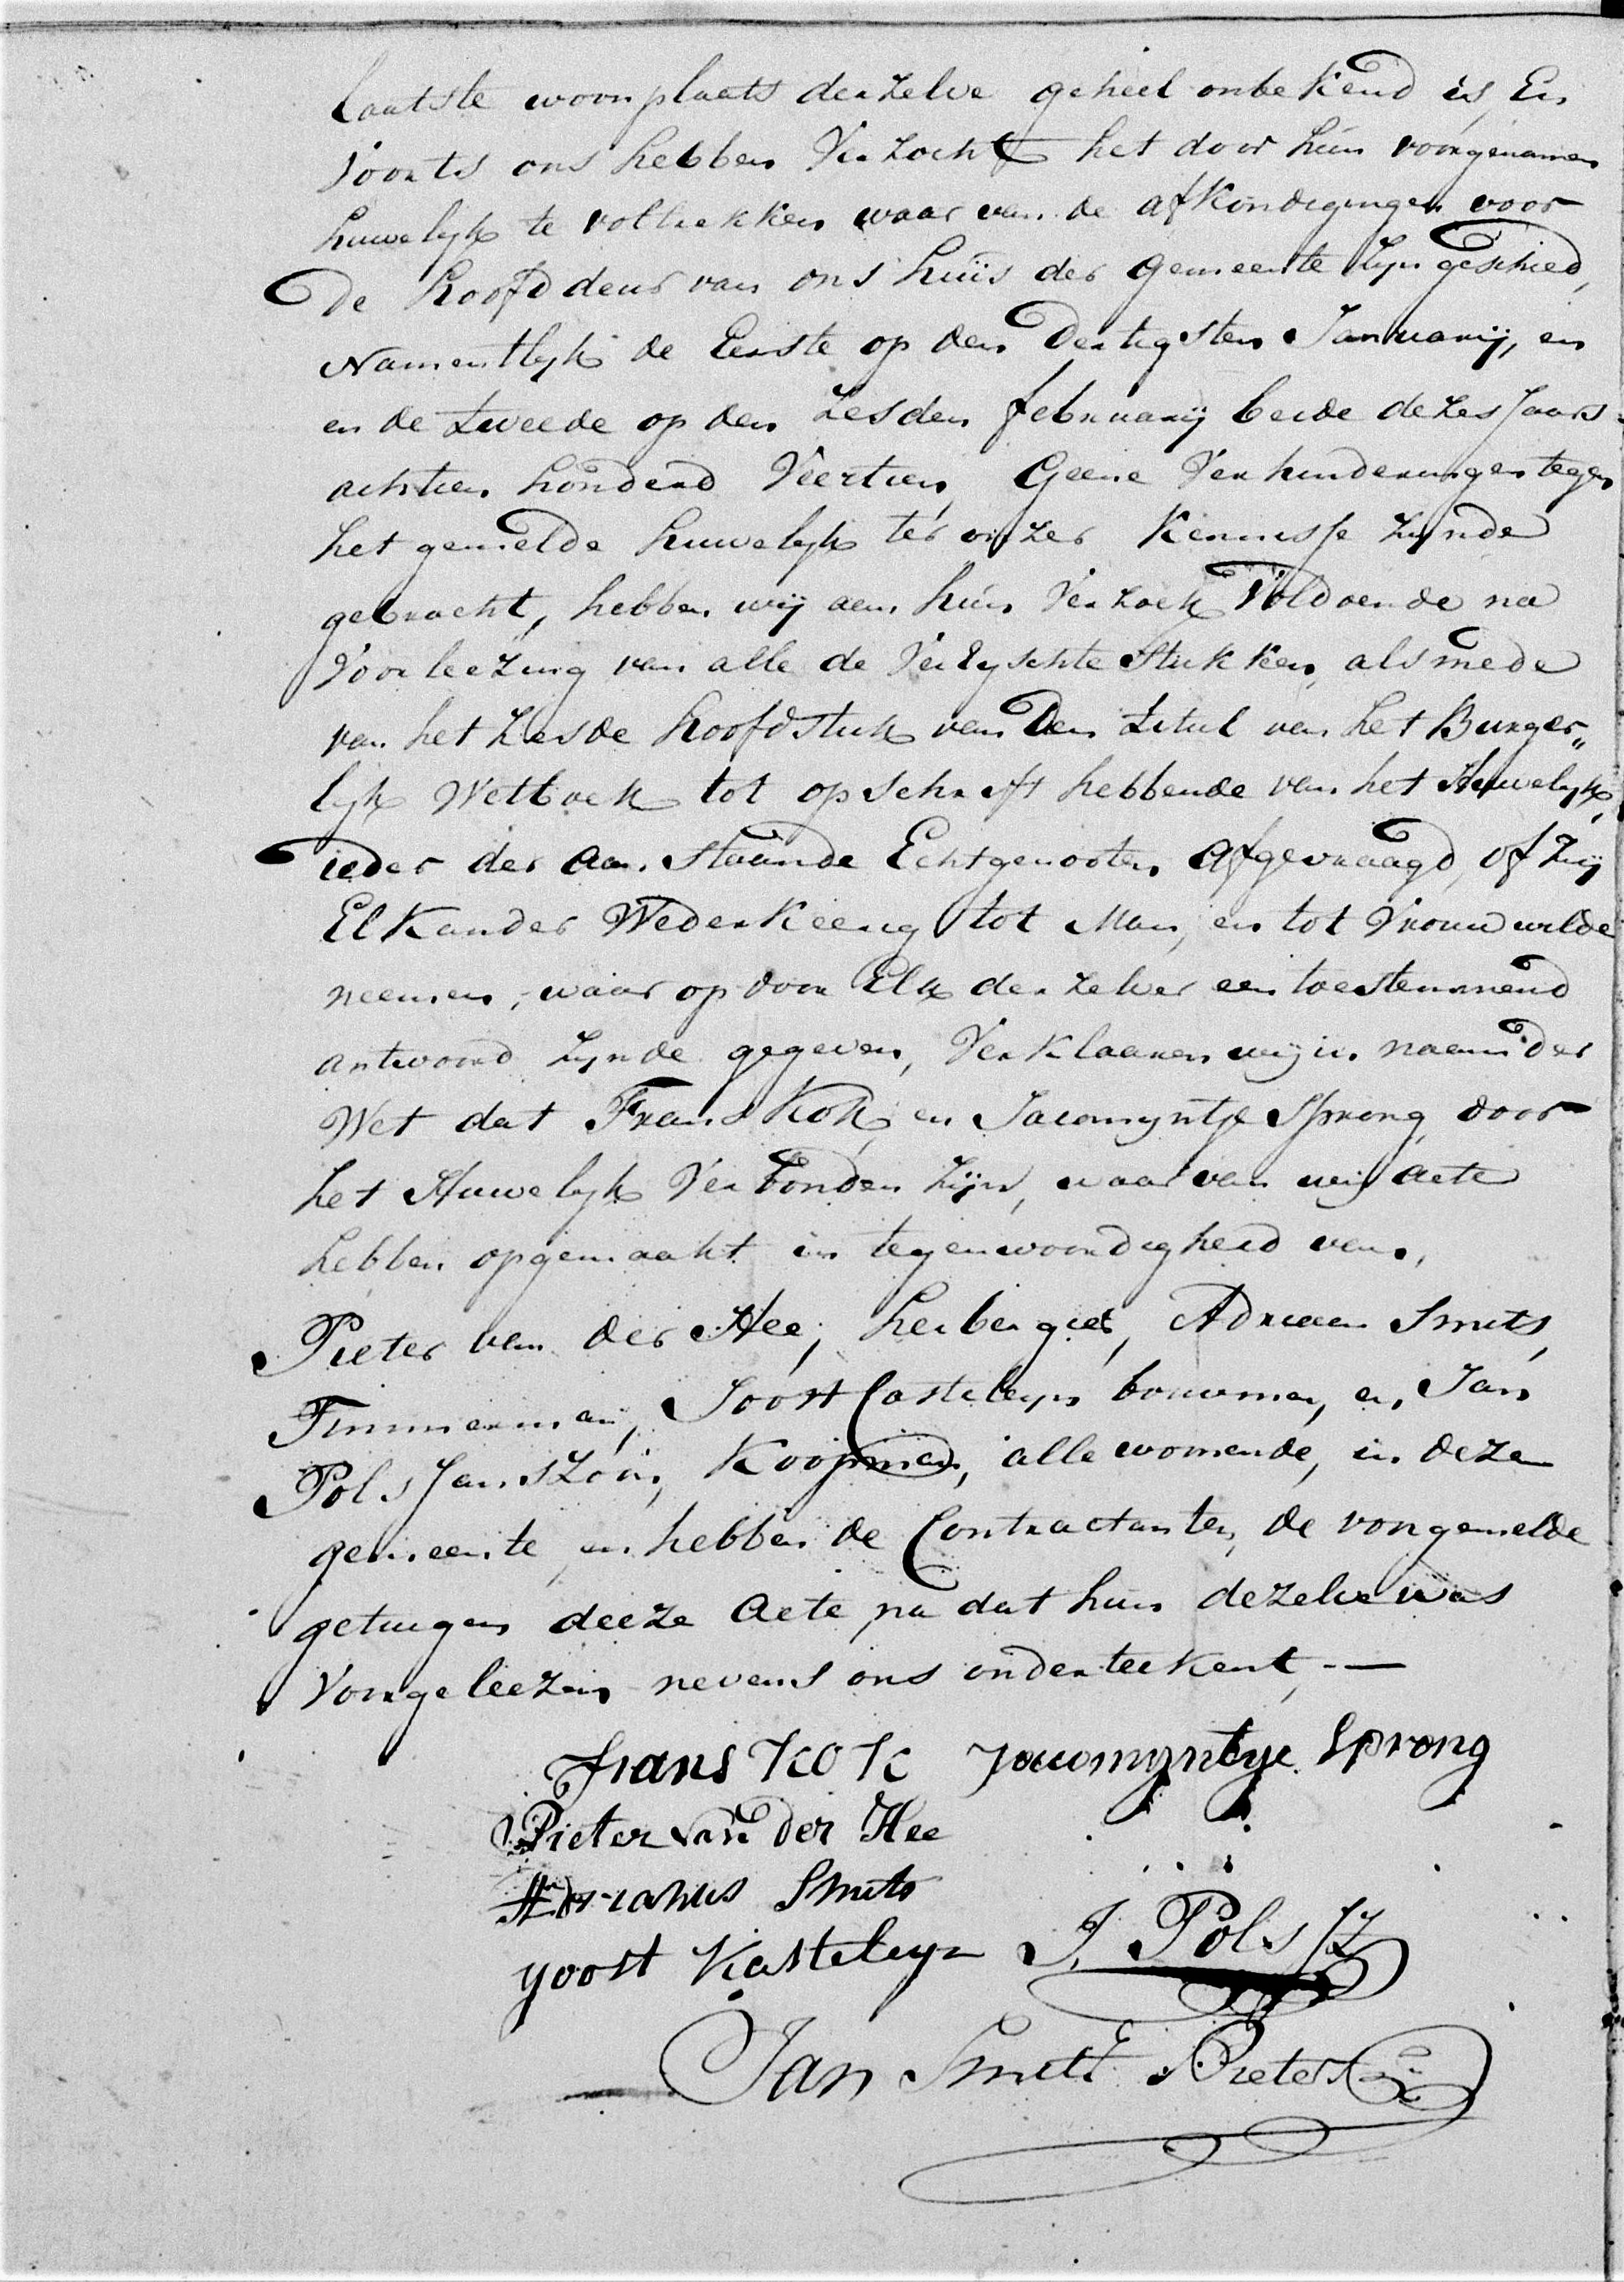 laatste woonplaats derzelve geheel onbekend is, En
voorts ons hebben Verzocht het door hun voorgenomen
huwelyk te voltrekken waar van de afkondigingen voor
De hoofd deur van ons huis der gemeente zyn geschied,
Namentlyk de Eerste op den Dertigsten Januarij, en
en de tweede op den Zesden february beide dezes Jaars
achtien honderd Veertien, Geene Verhinderingen tegen
het gemelde huwelyk ter onzer Kennisse zynde
gebracht, hebben wij aan hun Verzoek Voldoende na
Voorleezing van alle de Verlyschte Stukken, alsmede
van het Zesde hoofdstuk van Den titul van het Burger„
lyk Wetboek tot opschrift hebbende van het Huwelyk,
ieder der Aan Staande Echtgenooten Afgevraagd, of zij
Elkander Wederkeerig tot Man, en tot Vrouw wilde
neemen, waar op door Elk derzelver een toestemmend
antwoord zynde gegeven, Verklaaren wij in naam der
Wet dat Frans Kok, en Jacomyntje Sprong, door
het Huwelyk Verbonden zijn, waar van wij acte
hebben opgemaakt in tegenwoordigheid van,
Pieter van der Hee, herbergier, Adriaan Smits,
Timmerman, Joost Casteleyn bouwman, en Jan
Pols Janszoon, Koopman, alle woonende, in deze
gemeente, en hebben de Contractanten, de voorgemelde
getuigen deeze Acte, na dat hun dezelve was
Voorgeleezen nevens ons onderteekent, —
frans KoK Jacomyntye Sprong
Pieter van der Hee
Adrianus Smits
yoost Kasteleyn J. Pols JZ
Jan Smitt Pietersz